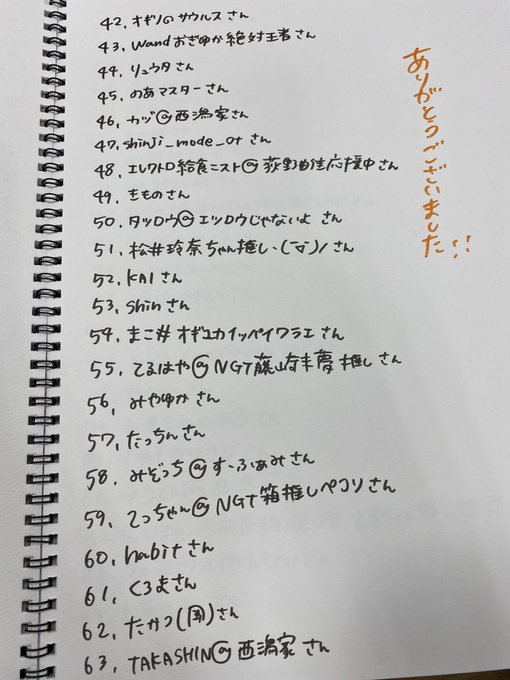 42. オギノのサウルス さん
43. Wandおぎゆか絶対王者さん
44. リュウタ さん
45. のあマスター さん
46. カヅ@西潟家さん
47. shinji_mode_ot さん
48. エレクトロ給食ニスト@荻野由佳応援中さん
49. きものさん
50. タツロウ@エツロウじゃないよ さん
51. 松井玲奈ちゃん推し、(▽)ノさん
52. KAI さん
53. shin さん
54. まこ# オギユカイッペイワラエ さん
55. てるはや@NGT藤崎未夢推し さん
56. みやゆか さん
57. たっちんさん
58. みぞっち@すーふぁみさん
59. てっちゃん@NGT箱推しペコリさん
60. habit さん
61. くろまさん
62. たかつ(周)さん
63. TAKASHIN@西潟家 さん
ありがとうございました!!